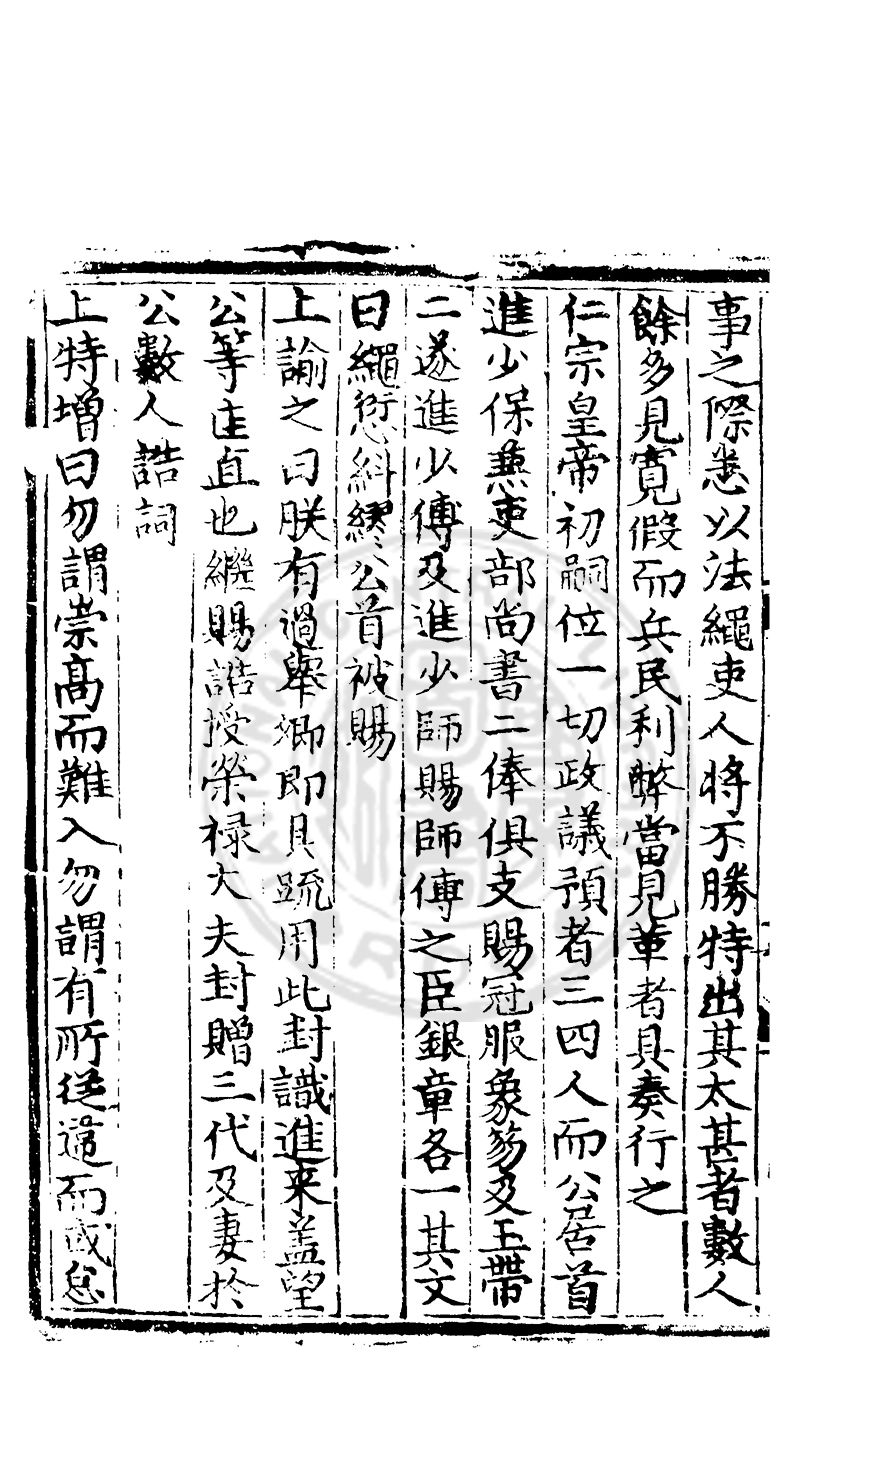 事之際悉以法繩吏人將不勝特出其太甚者數人
餘多見寬假而兵民利弊當見革者具奏行之
仁宗皇帝初嗣位一切政議預者三四人而公居首
進少保兼吏部尚書二俸俱支賜冠服象笏及玉帶
二遂進少傅及進少師賜師傅之臣銀章各一其文
曰繩愆糾繆公首被賜
上諭之曰朕有過舉卿即具疏用此封識進来盖望
公等匡直也繼賜誥授榮祿大夫封贈三代及妻於
公數人誥詞
上特增曰勿謂崇高而難入勿謂有所從違而或怠